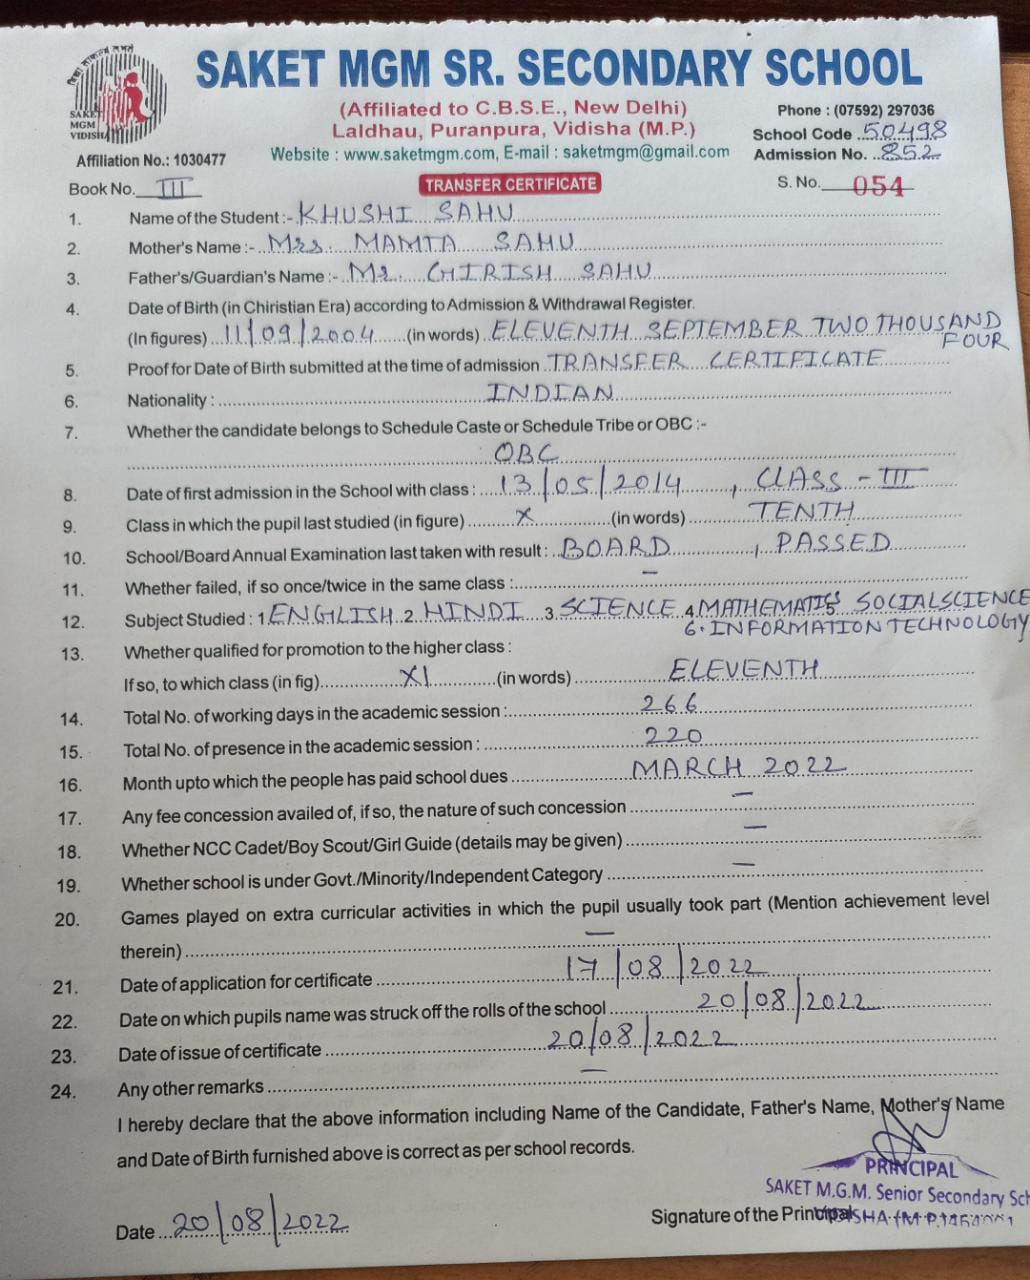 SAKET MGM SR. SECONDARY SCHOOL
SAKET
MGM
VIDISHA
(Affiliated to C.B.S.E., New Delhi)
Laldhau, Puranpura, Vidisha (M.P.)
Website : www.saketmgm.com, E-mail : saketmgm@gmail.com
Phone : (07592) 297036
School Code 50498
Admission No. 852
Affiliation No.: 1030477
Book No. III
TRANSFER CERTIFICATE
S. No. 054
1. Name of the Student :- KHUSHI SAHU
2. Mother's Name :- Mrs. MAMTA SAHU
3. Father's/Guardian's Name :- Mr. CHIRISH SAHU
4. Date of Birth (in Chiristian Era) according to Admission & Withdrawal Register.
(In figures) 11/09/2004 (in words) ELEVENTH SEPTEMBER TWO THOUSAND
FOUR
5. Proof for Date of Birth submitted at the time of admission TRANSFER CERTIFICATE
6. Nationality : INDIAN
7. Whether the candidate belongs to Schedule Caste or Schedule Tribe or OBC :-
OBC
8. Date of first admission in the School with class : 13/05/2014, CLASS - III
9. Class in which the pupil last studied (in figure) X (in words) TENTH
10. School/Board Annual Examination last taken with result : BOARD, PASSED
11. Whether failed, if so once/twice in the same class : —
12. Subject Studied : 1 ENGLISH 2. HINDI 3. SCIENCE 4. MATHEMATICS 5. SOCIAL SCIENCE
6. INFORMATION TECHNOLOGY
13. Whether qualified for promotion to the higher class :
If so, to which class (in fig) XI (in words) ELEVENTH
14. Total No. of working days in the academic session : 266
15. Total No. of presence in the academic session : 220
16. Month upto which the people has paid school dues MARCH 2022
17. Any fee concession availed of, if so, the nature of such concession —
18. Whether NCC Cadet/Boy Scout/Girl Guide (details may be given) —
19. Whether school is under Govt./Minority/Independent Category —
20. Games played on extra curricular activities in which the pupil usually took part (Mention achievement level
therein) —
21. Date of application for certificate 17/08/2022
22. Date on which pupils name was struck off the rolls of the school 20/08/2022
23. Date of issue of certificate 20/08/2022
24. Any other remarks —
I hereby declare that the above information including Name of the Candidate, Father's Name, Mother's Name
and Date of Birth furnished above is correct as per school records.
PRINCIPAL
SAKET M.G.M. Senior Secondary Sch
Date 20/08/2022
Signature of the Principal